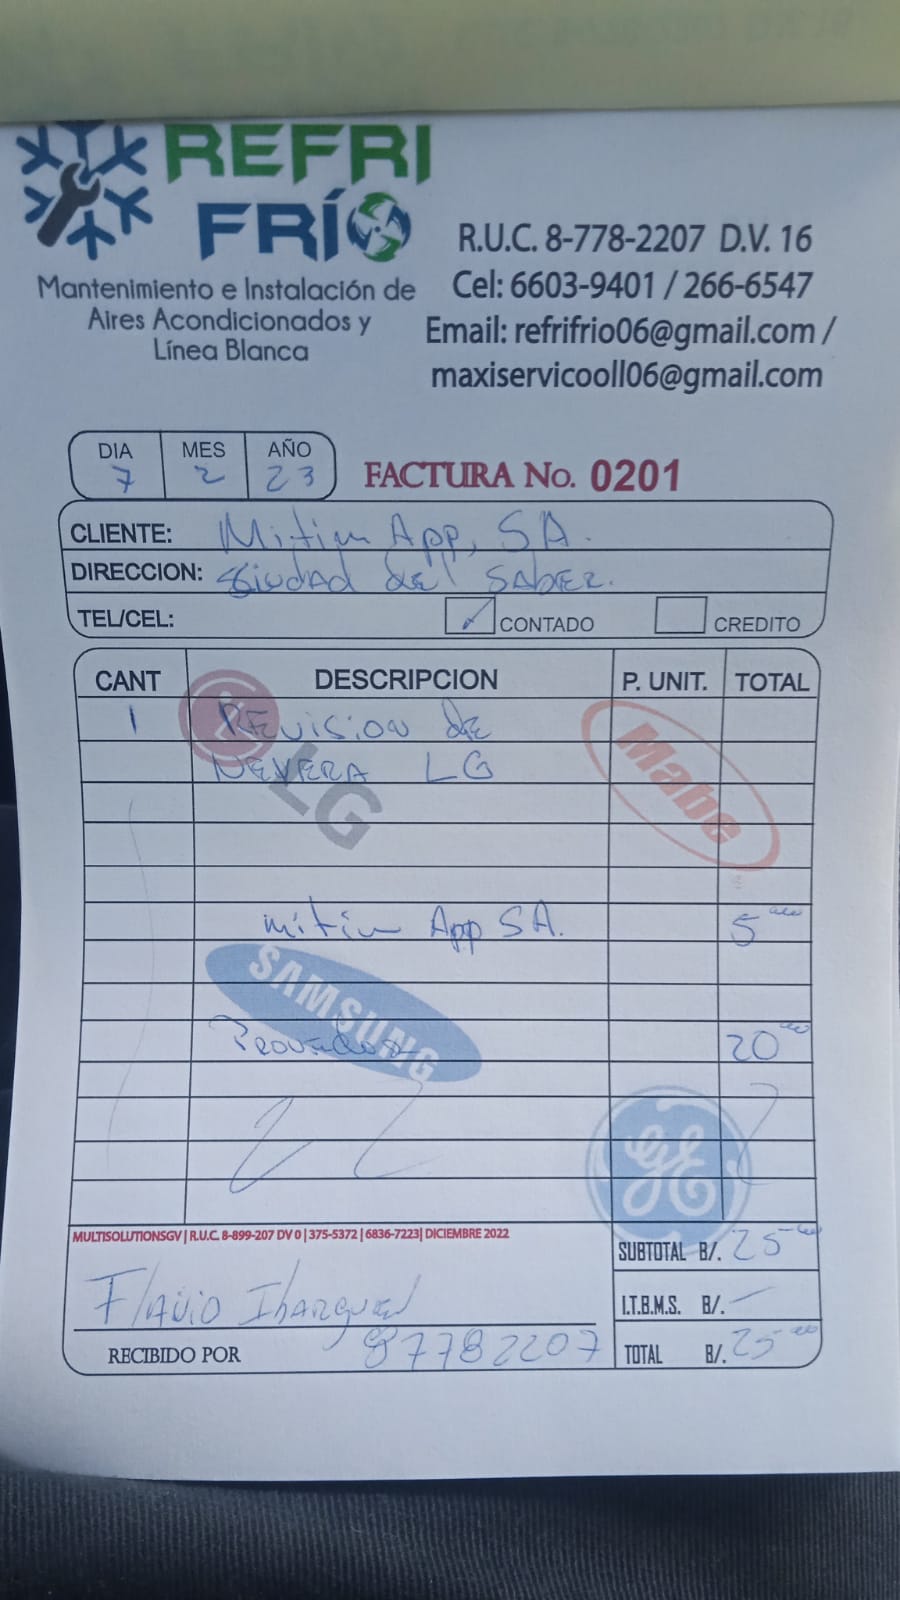 REFRI
FRÍO
Mantenimiento e Instalación de
Aires Acondicionados y
Línea Blanca
R.U.C. 8-778-2207 D.V. 16
Cel: 6603-9401 / 266-6547
Email: refrifrio06@gmail.com /
maxiservicooll06@gmail.com
DIA MES AÑO
7 2 23
FACTURA No. 0201
CLIENTE: Mitim App, SA.
DIRECCION: Ciudad del SABER.
TEL/CEL: ✓ CONTADO CREDITO
CANT DESCRIPCION P. UNIT. TOTAL
1 REVISION de
NEVERA LG
LG
Mabe
mitim App SA. 5
SAMSUNG
20
GE
MULTISOLUTIONSGV | R.U.C. 8-899-207 DV 0 | 375-5372 | 6836-7223| DICIEMBRE 2022
SUBTOTAL B/. 25
I.T.B.M.S. B/. —
TOTAL B/. 25
Flavio Ibarguen
RECIBIDO POR 87782207